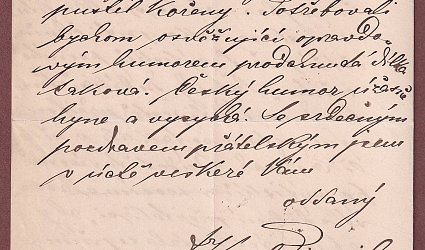 pustil kořeny. Potřebovali
bychom osvěžující opravdo-
vým humorem prodchnutá dílka
taková. Český humor úžasně
hyne a vysychá. Se srdečným
pozdravem přátelským jsem
v úctě veškeré Vám
oddaný